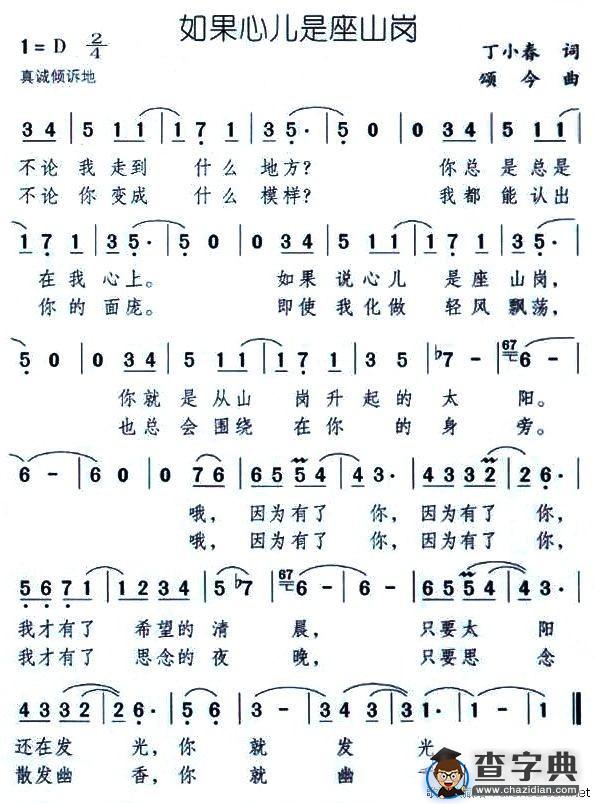 如果心儿是座山岗
1=D 2/4
丁小春 词
真诚倾诉地
颂今 曲
3 4 | 5 1 1 | 1 7 1 | 3 5· | 5 0 | 0 3 4 | 5 1 1 |
不论我走到 什么地方? 你总是总是
不论你变成 什么模样? 我都能认出
1 7 1 | 3 5· | 5 0 | 0 3 4 | 5 1 1 | 1 7 1 | 3 5· |
在我心上。 如果说心儿 是座山岗,
你的面庞。 即使我化做 轻风飘荡,
5 0 | 0 3 4 | 5 1 1 | 1 7 1 | 3 5 | ♭7 - | 67 6 - |
你就是从山 岗升起的太 阳。
也总会围绕 在你的身 旁。
6 - | 6 0 | 0 7 6 | 6 5 5 4 | 4 3· | 4 3 3 2 | 2 6· |
哦, 因为有了你, 因为有了你,
哦, 因为有了你, 因为有了你,
5 6 7 1 | 1 2 3 4 | 5 ♭7 | 67 6 - | 6 - | 6 5 5 4 | 4 3· |
我才有了 希望的清 晨, 只要太 阳
我才有了 思念的夜 晚, 只要思 念
4 3 3 2 | 2 6· | 5 6· | 6 3 | 2 3 3 1 | 1 - | 1 - ‖
还在发 光,你 就 发 光
散发幽 香,你 就 幽
查字典
www.chazidian.com